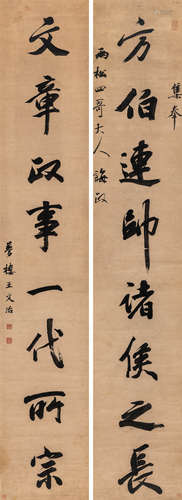 集奉
方伯連帥諸侯之長
雨松四哥大人誨政
文章政事一代所宗
夢樓王文治